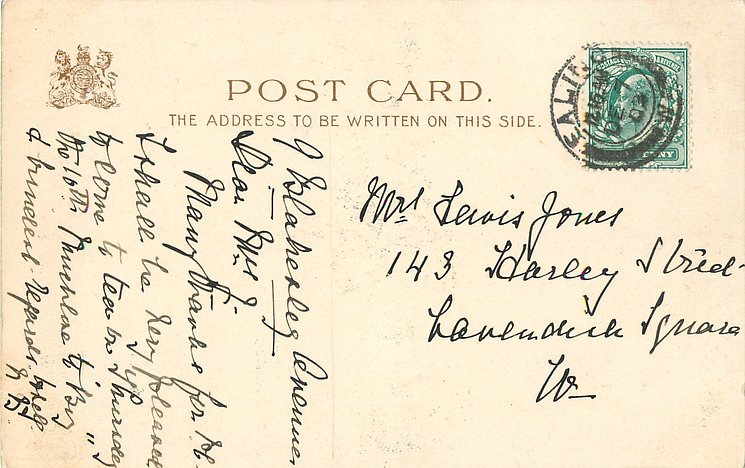 POST CARD.
THE ADDRESS TO BE WRITTEN ON THIS SIDE.
EALING
DE 7
03
Mrs Lewis Jones
143 Harley Street
Cavendish Square
W
9 Blakesley Avenue
Dear Mrs J.
Many thanks for
I shall be very pleased
to come to tea on Thursday
the 10th
& kindest regards